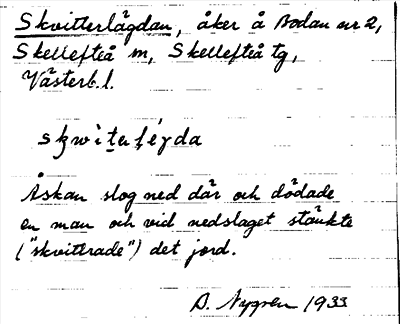 Skvitterlägdan, åker å Bodan nr 2,
Skellefteå m, Skellefteå tg,
Västerb. l.
Åskan slog ned där och dödade
en man och vid nedslaget stänkte
("skvittrade") det jord.
D. Nygren 1933